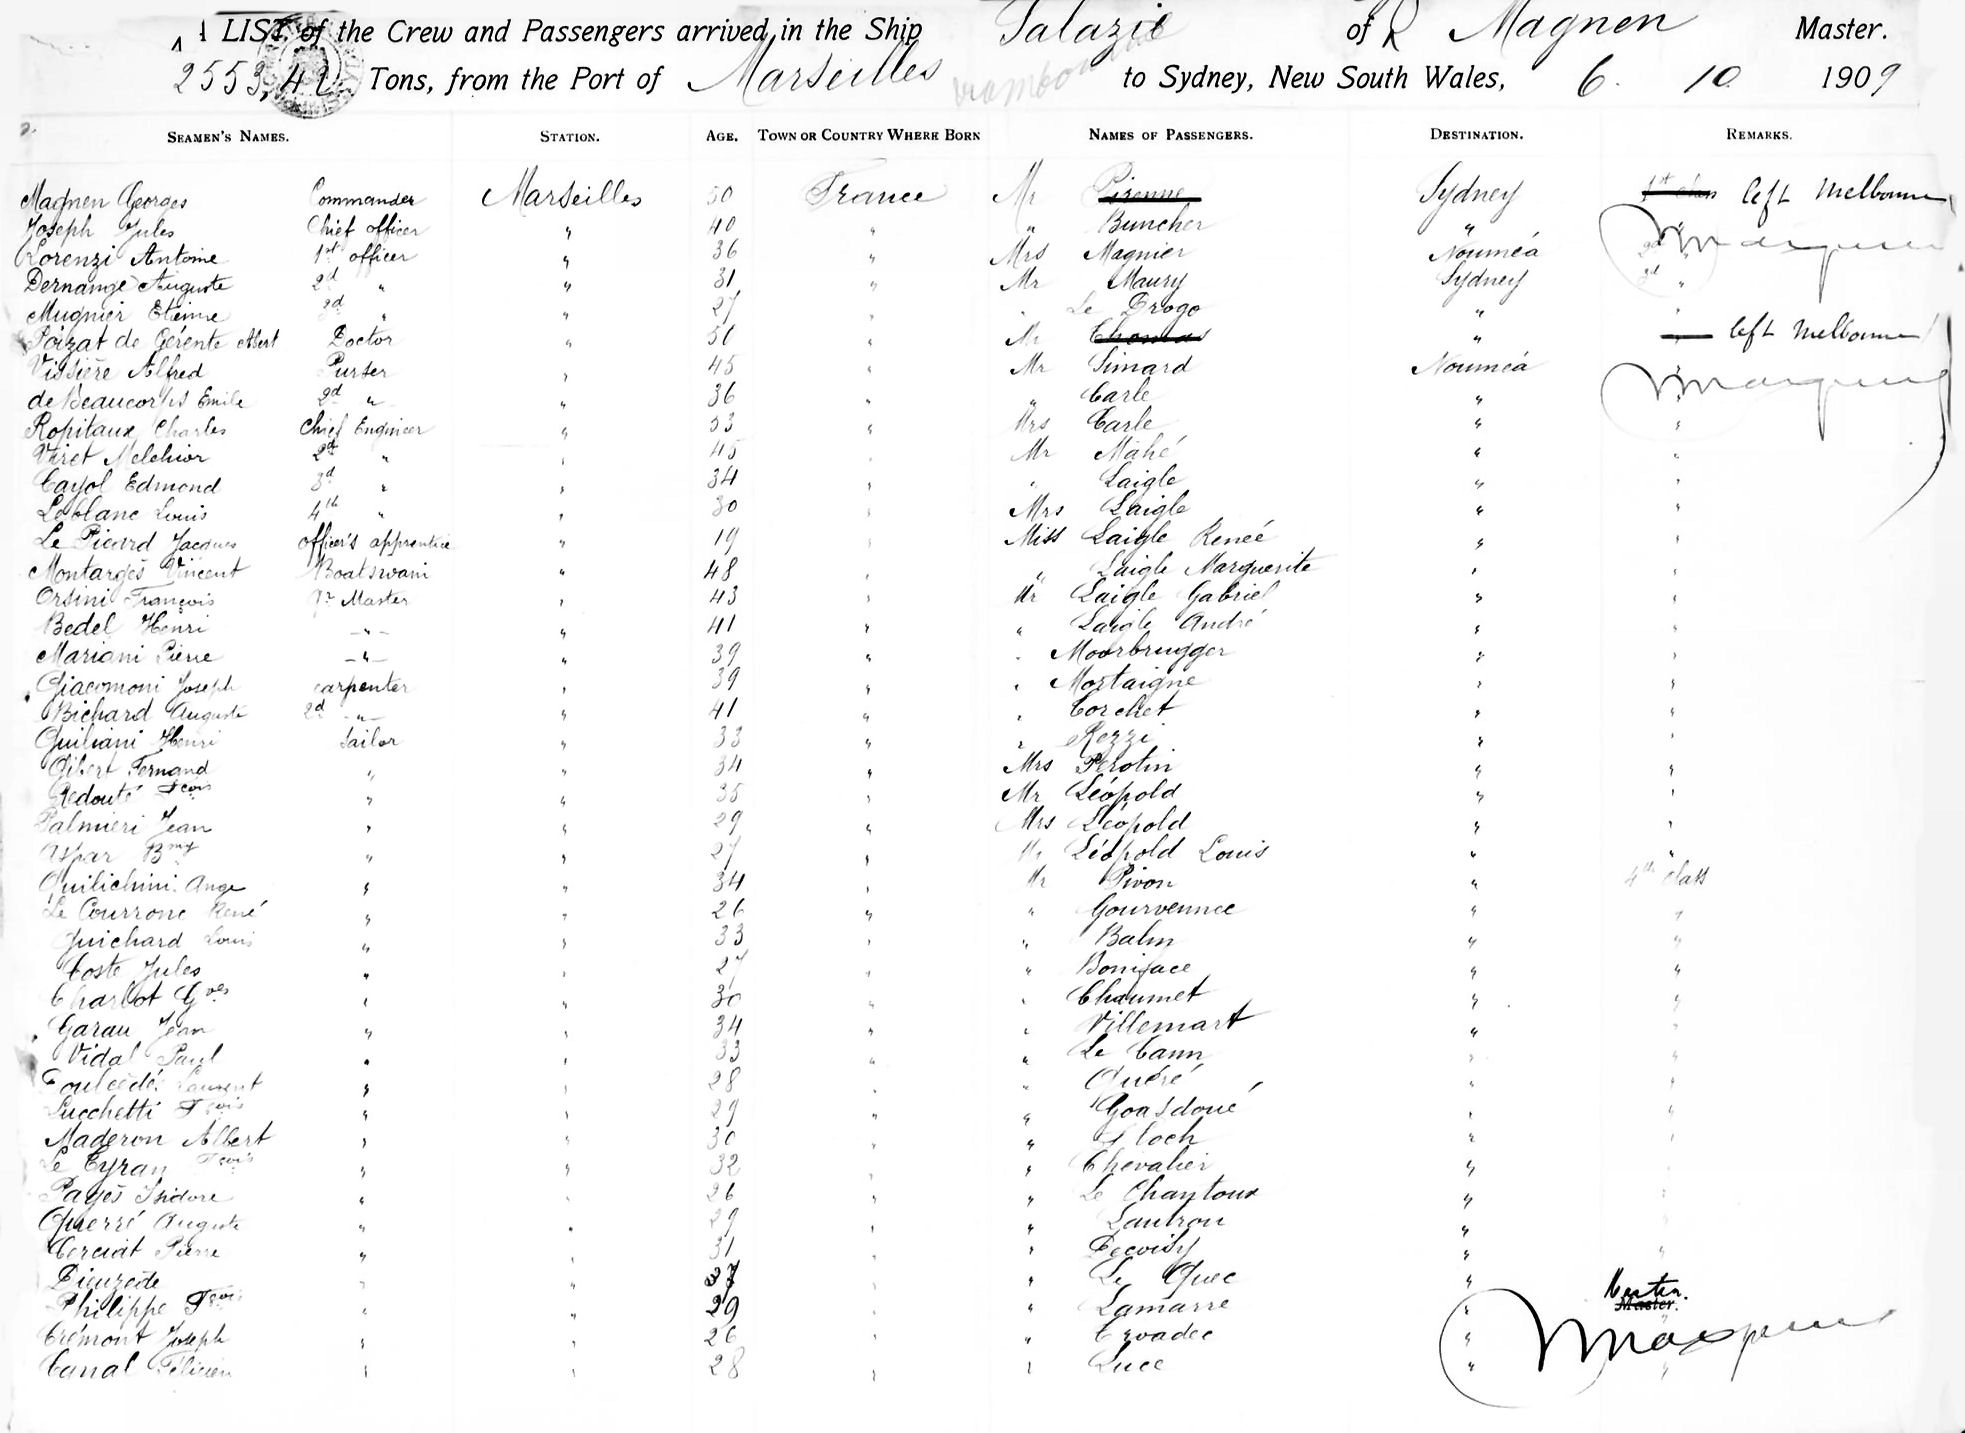 A LIST of the Crew and Passengers arrived in the Ship Salazie of R Magnen Master.
2553,42 Tons, from the Port of Marseilles to Sydney, New South Wales, 6. 10 1909
SEAMEN'S NAMES. STATION. AGE. TOWN OR COUNTRY WHERE BORN NAMES OF PASSENGERS. DESTINATION. REMARKS.
Magnen Georges Commander Marseilles 50 France Mr Pirenne Sydney 1st class left Melbourne
Joseph Jules Chief officer " 40 " " Buncher " "
Lorenzi Antoine 1st officer " 36 " Mrs Magnier Nouméa 2d "
Dernange Auguste 2d " " 31 " Mr Maury Sydney 3d "
Mugnier Etienne 3d " " 27 " " Le Drogo " "
Poizat de Gérente Albert Doctor " 50 " Mr Thomas " " left Melbourne
Vissière Alfred Purser " 45 " Mr Simard Nouméa "
de Beaucorps Emile 2d " " 36 " " Carle " "
Ropitaux Charles Chief Engineer " 53 " Mrs Carle " "
Viret Melchior 2d " " 45 " Mr Mahé " "
Cayol Edmond 3d " " 34 " " Laigle " "
Leblanc Louis 4th " " 30 " Mrs Laigle " "
Le Picard Jacques officer's apprentice " 19 " Miss Laigle Renée " "
Montargès Vincent Boatswain " 48 " " Laigle Marguerite " "
Orsini François Qr Master " 43 " Mr Laigle Gabriel " "
Bedel Henri " " 41 " " Laigle André " "
Mariani Pierre " " 39 " " Moorbrugger " "
Giacomoni Joseph carpenter " 39 " " Mortaigne " "
Bichard Auguste 2d " " 41 " " Corchet " "
Guiliani Henri Sailor " 33 " " Rezzi " "
Gibert Fernand " " 34 " Mrs Perotin " "
Redouté Fcois " " 35 " Mr Léopold " "
Palmieri Jean " " 29 " Mrs Léopold " "
Aspar Bmy " " 27 " Mr Léopold Louis " "
Quilichini Ange " " 34 " Mr Pivon " 4th class
Le Courronc René " " 26 " " Gourvennec " "
Guichard Louis " " 33 " " Balm " "
Coste Jules " " 27 " " Boniface " "
Charlot Gves " " 30 " " Chaumet " "
Garau Jean " " 34 " " Villemart " "
Vidal Paul " " 33 " " Le Cann " "
Foulcédé Laurent " " 28 " " Quéré " "
Lucchetti Fcois " " 29 " " Goasdoué " "
Maderon Albert " " 30 " " Floch " "
Le Eyran Fcois " " 32 " " Chevalier " "
Pagès Isidore " " 26 " " Le Chantoux " "
Querré Auguste " " 29 " " Lautron " "
Cerciat Pierre " " 31 " " Decoisy " "
Dieuzède " " 27 " " Le Quec " "
Philippe Fcois " " 29 " " Lamarre " " Master.
Crémont Joseph " " 26 " " Croadec " "
Canal Félicien " " 28 " " Luce " "